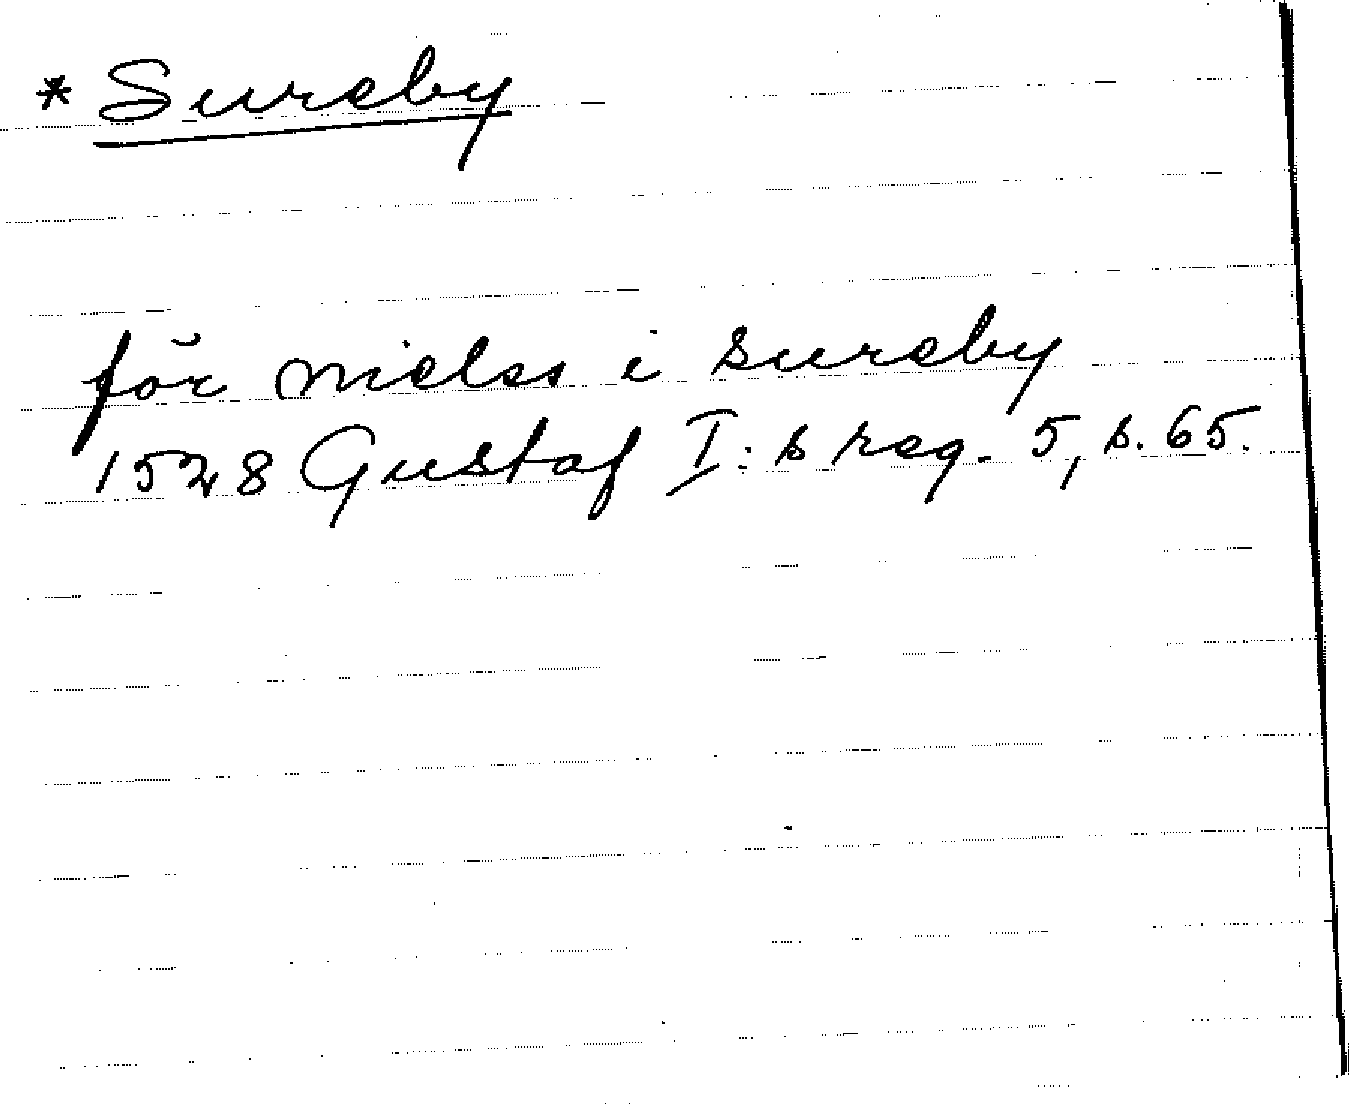 * Sureby
för nielss i sureby
1528 Gustaf I:s reg. 5, s. 65.